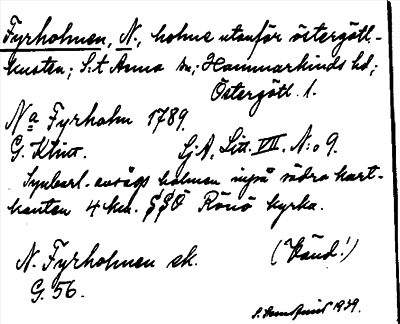 Fyrholmen, N., holme utanför östergötl.-
kusten; S:t Anna sn; Hammarkinds hd;
Östergötl. l.
Na Fyrholm 1789.
G. Klint. Sj.A. Litt. VII. N:o 9.
holmen invid södra kart-
kanten 4 km. SSÖ Rönö kyrka.
N. Fyrholmen ek.
G. 56. (Vänd!)
1939.